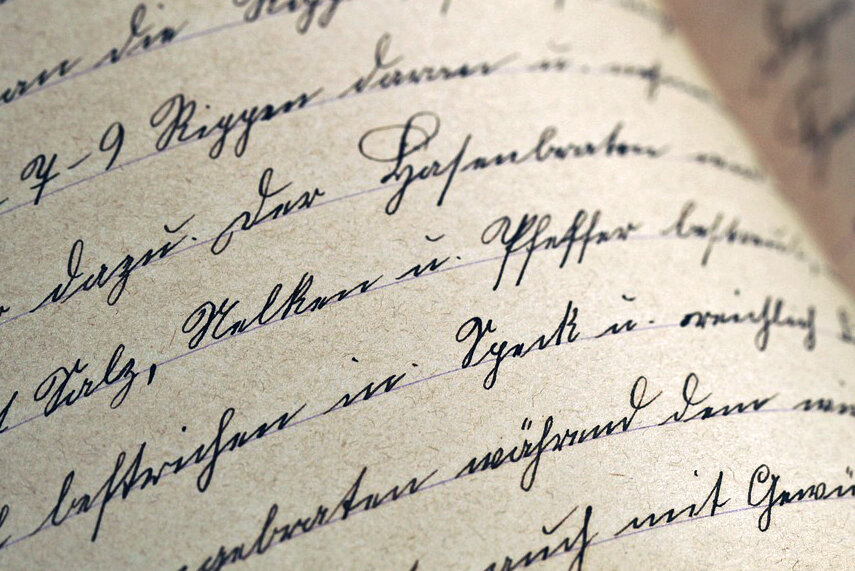 an die Ripp
7-9 Rippen daran u.
dazu. Der Hasenbraten
Salz, Nelken u. Pfeffer bestreut,
bestrichen in Speck u. reichlich
gebraten während dem
auch mit Gewü